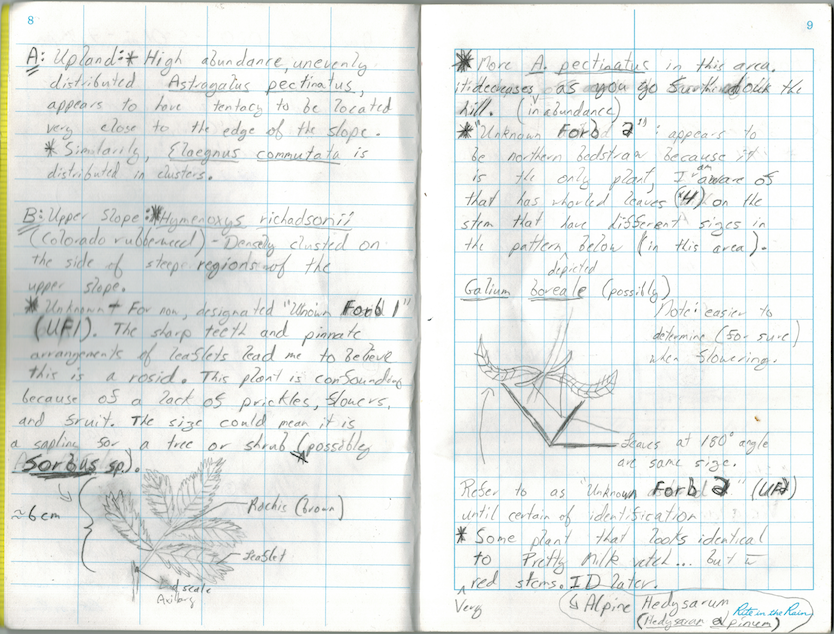 8
A: Upland:* High abundance, unevenly
distributed Astragalus pectinatus,
appears to have tentacy to be located
very close to the edge of the slope.
* Similarily, Elaegnus commutata is
distributed in clusters.
B: Upper Slope:* Hymenoxys richadsonii
(Colorado rubberweed) - Densely clusted on
the side of steep regions of the
upper slope.
* Unknown For now, designated "Unown Forb 1"
(UF1). The sharp teeth and pinnate
arrangements of leaflets lead me to believe
this is a rosid. This plant is confounding
because of a lack of prickles, flowers,
and fruit. The size could mean it is
a sapling for a tree or shrub (possibley
Sorbus sp).
≈6cm
Rachis (brown)
leaflet
Bud scale
Axillary
9
* More A. pectinatus in this area.
it decreases as you go the
hill. (in abundance)
* "Unknown Forb 2": appears to
be northern bedstraw because it
is the only plant, I am aware of
that has whorled leaves (4) on the
stem that have different sizes in
the pattern depicted below (in this area).
Galium boreale (possilly)
Note: easier to
determine (for sure)
when flowering.
leaves at 180° angle
are same size.
Refer to as "Unknown Forb 2" (UF2)
until certain of identification
* Some plant that looks identical
to Pretty Milk vetch... but
Very red stems. ID later.
↳ Alpine Hedysarum
(Hedysarum alpinum)
Rite in the Rain